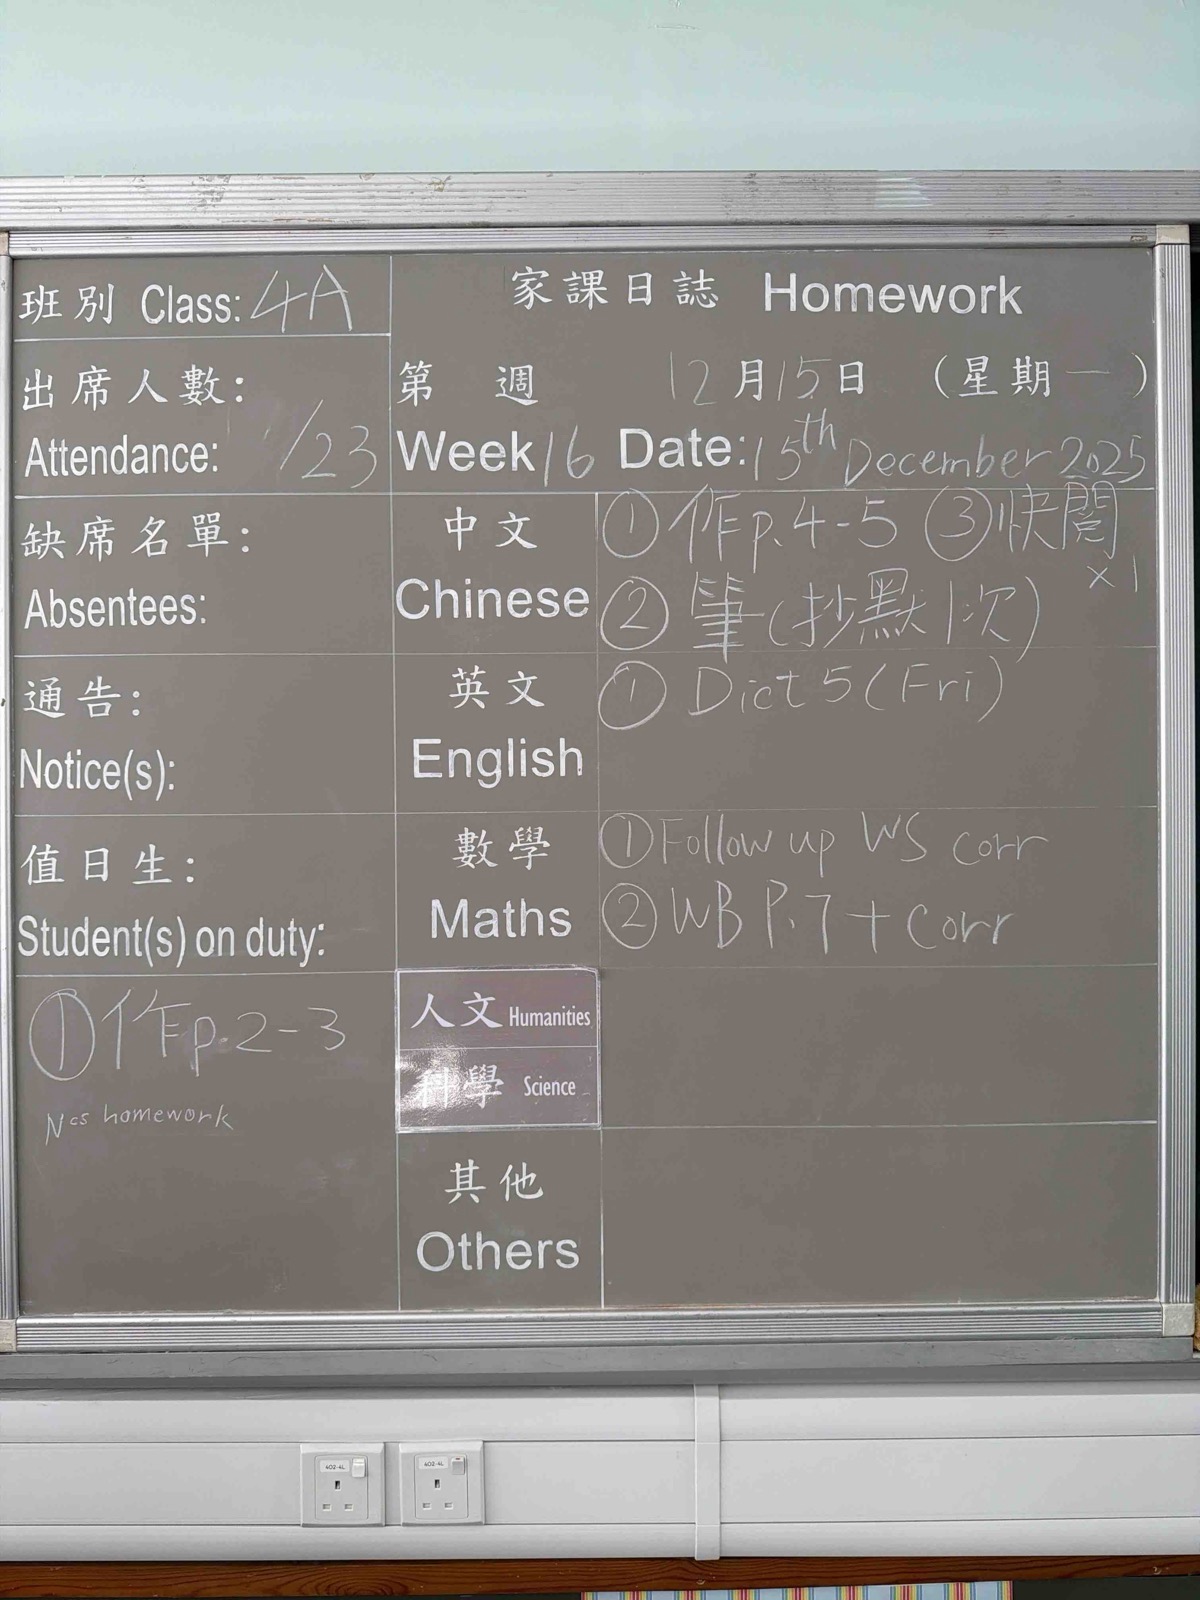 班別 Class: 4A
家課日誌 Homework
出席人數:
Attendance: /23
第 週 12月15日 (星期一)
Week 16 Date: 15th December 2025
缺席名單:
Absentees:
中文
Chinese
① 作p.4-5 ③快閱
x1
② 筆(抄默1次)
通告:
Notice(s):
英文
English
① Dict 5 (Fri)
值日生:
Student(s) on duty:
數學
Maths
① Follow up WS corr
② WB P.7 + corr
① 作p.2-3
Ncs homework
人文 Humanities
科學 Science
其他
Others
402-4L
402-4L